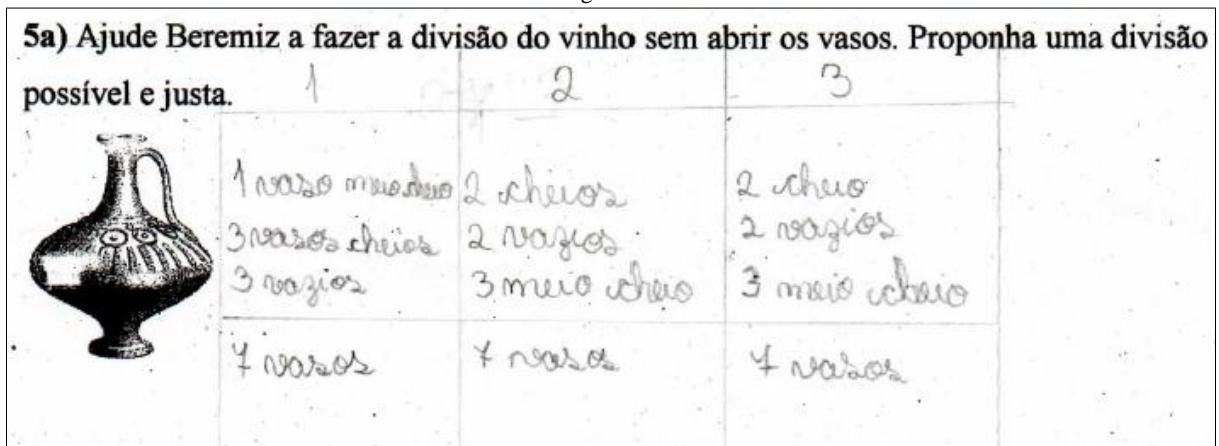 5a) Ajude Beremiz a fazer a divisão do vinho sem abrir os vasos. Proponha uma divisão
possível e justa.
1 2 3
1 vaso meio cheio 2 cheios 2 cheio
3 vasos cheios 2 vazios 2 vazios
3 vazios 3 meio cheio 3 meio cheio
7 vasos 7 vasos 7 vasos